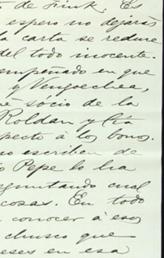 de Fink. Es
espero no dejará
la carta se reduce
del todo inocente.
empeñado en que
y Vingochea,
socio de la
Roldan y Cía
specto a los bonos.
no escriban de
Pepe lo lea
eguntando cual
cosas. En todo
a conocer á esos
chusco que
eses en esa